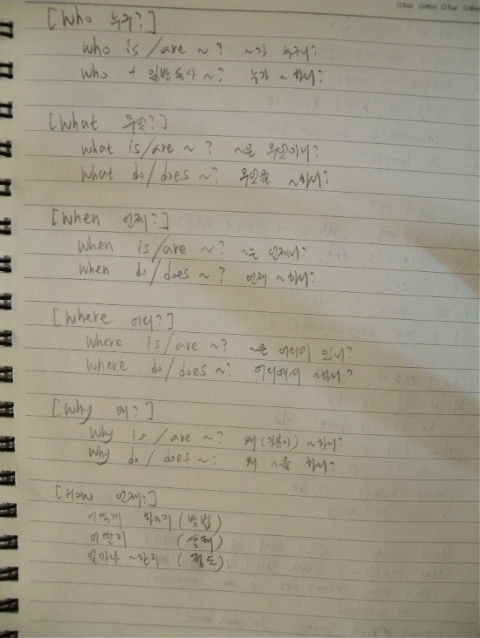 [Who 누구?]
who is/are ~? ~가 누구니?
who + 일반동사 ~? 누가 ~하니?
[What 무엇?]
what is/are ~? ~은 무엇이니?
what do/does ~? 무엇을 ~하니?
[When 언제?]
when is/are ~? ~는 언제니?
when do/does ~? 언제 ~하니?
[Where 어디?]
where is/are ~? ~은 어디에 있니?
where do/does ~? 어디에서 ~하니?
[Why 왜?]
why is/are ~? 왜 ~하니?
why do/does ~? 왜 ~를 하니?
[How 언제?]
어떻게 하는지 (방법)
어떤지 (상태)
얼마나 ~한지 (정도)